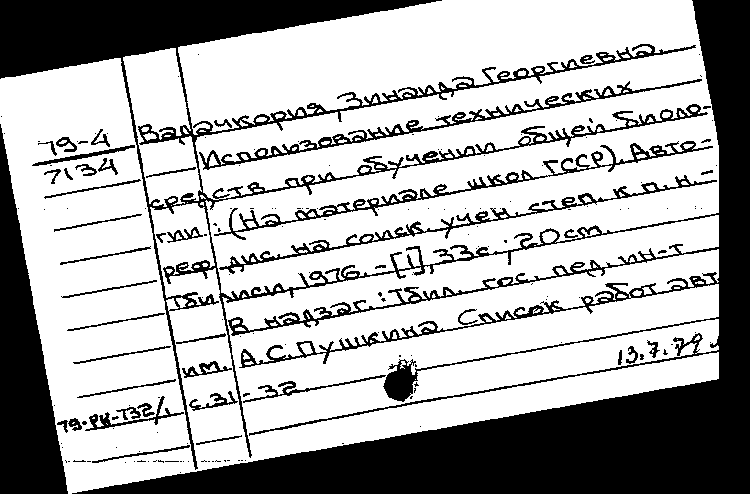 79-4
7134
Вадачкория, Зинаида Георгиевна.
Использование технических
средств при обучении общей биоло-
гии : (На материале школ ГССР). Авто-
реф. дис. на соиск. учен. степ. к. п. н. -
Тбилиси, 1976. - [1], 33с. ; 20 cm.
В надзаг. : Тбил. гос. пед. ин-т
им. А.С. Пушкина. Список работ авт
с. 31 - 32.
13.7.79
79-РК-732/1